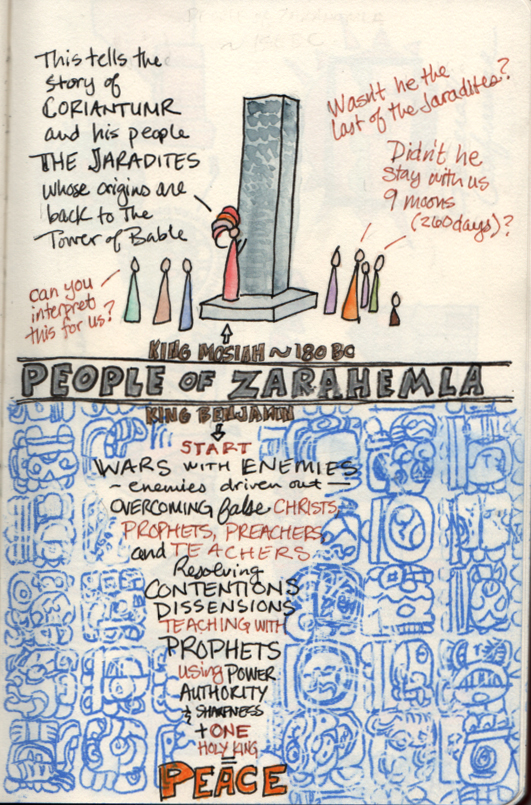 This tells the
story of
CORIANTUMR
and his people
THE JARADITES
whose origins are
back to The
Tower of Bable
Wasn't he the
last of the Jaradites?
Didn't he
stay with us
9 moons
(260 days)?
can you
interpret
this for us?
KING MOSIAH ~ 180 BC
PEOPLE OF ZARAHEMLA
KING BENJAMIN
START
WARS WITH ENEMIES
~ enemies driven out —
OVERCOMING false CHRISTS,
PROPHETS, PREACHERS,
and TEACHERS.
Resolving
CONTENTIONS
DISSENSIONS
TEACHING WITH
PROPHETS
using POWER
AUTHORITY
& SHARPNESS
+ ONE
HOLY KING
=
PEACE